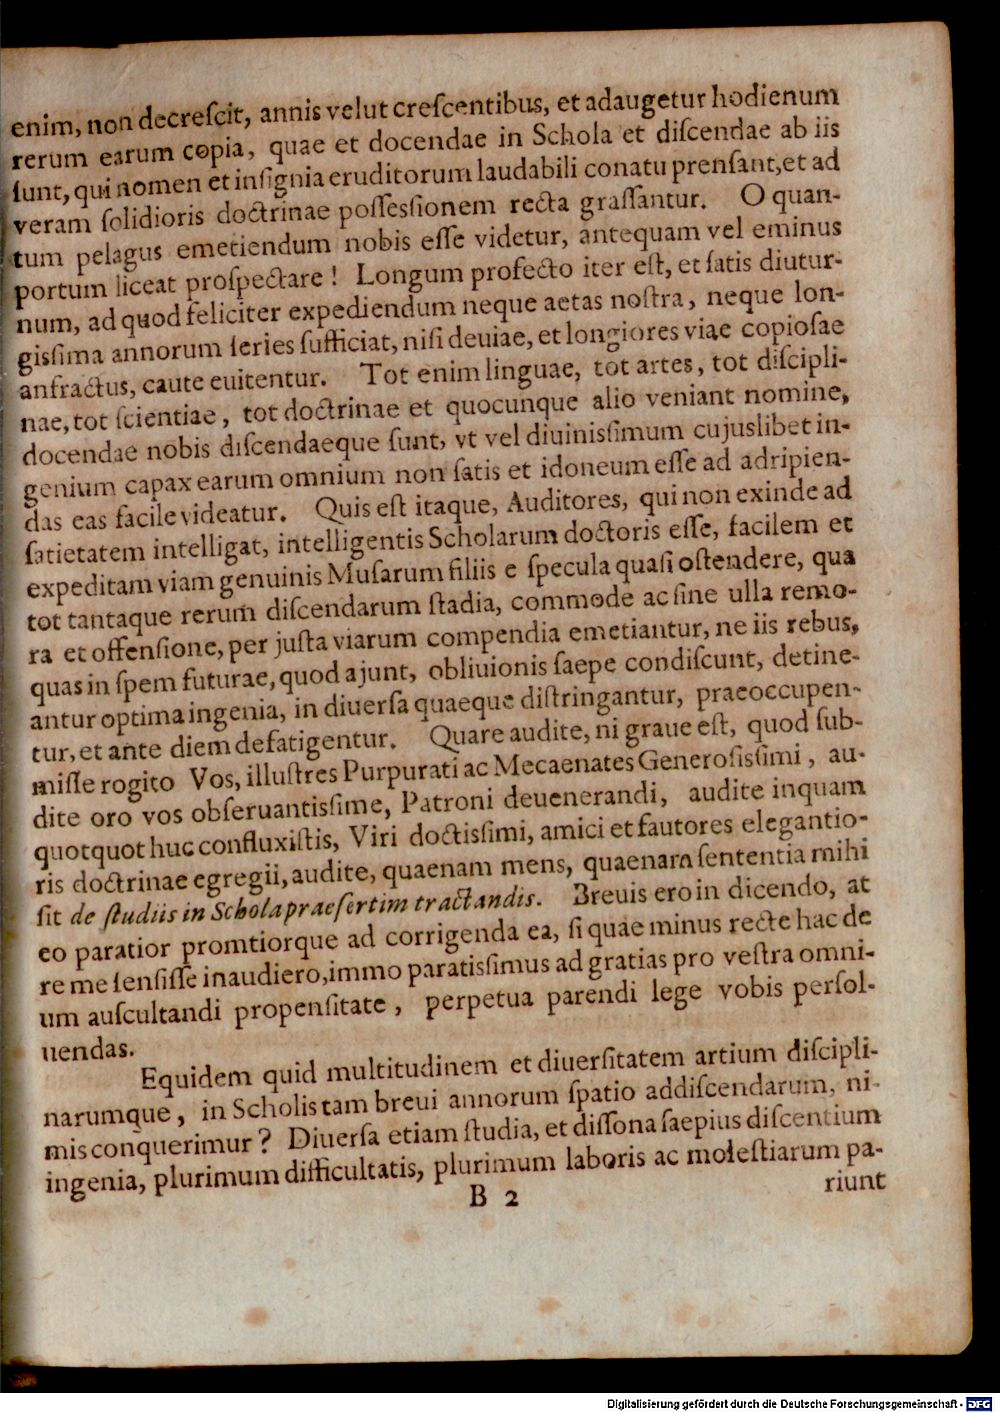 enim, non decreſcit, annis velut creſcentibus, et adaugetur hodienum
rerum earum copia, quae et docendae in Schola et diſcendae ab iis
ſunt, qui nomen et inſignia eruditorum laudabili conatu prenſant, et ad
veram ſolidioris doctrinae poſſeſſionem recta graſſantur. O quan-
tum pelagus emetiendum nobis eſſe videtur, antequam vel eminus
portum liceat proſpectare! Longum profecto iter eſt, et ſatis diutur-
num, ad quod feliciter expediendum neque aetas noſtra, neque lon-
giſſima annorum ſeries ſufficiat, niſi deuiae, et longiores viae copioſae
anfractus, caute euitentur. Tot enim linguae, tot artes, tot diſcipli-
nae, tot ſcientiae, tot doctrinae et quocunque alio veniant nomine,
docendae nobis diſcendaeque ſunt, vt vel diuiniſſimum cujuslibet in-
genium capax earum omnium non ſatis et idoneum eſſe ad adripien-
das eas facile videatur. Quis eſt itaque, Auditores, qui non exinde ad
ſatietatem intelligat, intelligentis Scholarum doctoris eſſe, facilem et
expeditam viam genuinis Muſarum filiis e ſpecula quaſi oſtendere, qua
tot tantaque rerum diſcendarum ſtadia, commode ac ſine ulla remo-
ra et offenſione, per juſta viarum compendia emetiantur, ne iis rebus,
quas in ſpem futurae, quod ajunt, obliuionis ſaepe condiſcunt, detine-
antur optima ingenia, in diuerſa quaeque diſtringantur, praeoccupen-
tur, et ante diem defatigentur. Quare audite, ni graue eſt, quod ſub-
miſſe rogito Vos, illuſtres Purpurati ac Mecaenates Generoſiſſimi, au-
dite oro vos obſeruantiſſime, Patroni deuenerandi, audite inquam
quotquot huc confluxiſtis, Viri doctiſſimi, amici et fautores elegantio-
ris doctrinae egregii, audite, quaenam mens, quaenam ſententia mihi
ſit de ſtudiis in Schola praeſertim tractandis. Breuis ero in dicendo, at
eo paratior promtiorque ad corrigenda ea, ſi quae minus recte hac de
re me ſenſiſſe inaudiero, immo paratiſſimus ad gratias pro veſtra omni-
um auſcultandi propenſitate, perpetua parendi lege vobis perſol-
uendas.
Equidem quid multitudinem et diuerſitatem artium diſcipli-
narumque, in Scholis tam breui annorum ſpatio addiſcendarum, ni-
mis conquerimur? Diuerſa etiam ſtudia, et diſſona ſaepius diſcentium
ingenia, plurimum difficultatis, plurimum laboris ac moleſtiarum pa-
B 2 riunt
Digitalisierung gefördert durch die Deutsche Forschungsgemeinschaft - DFG